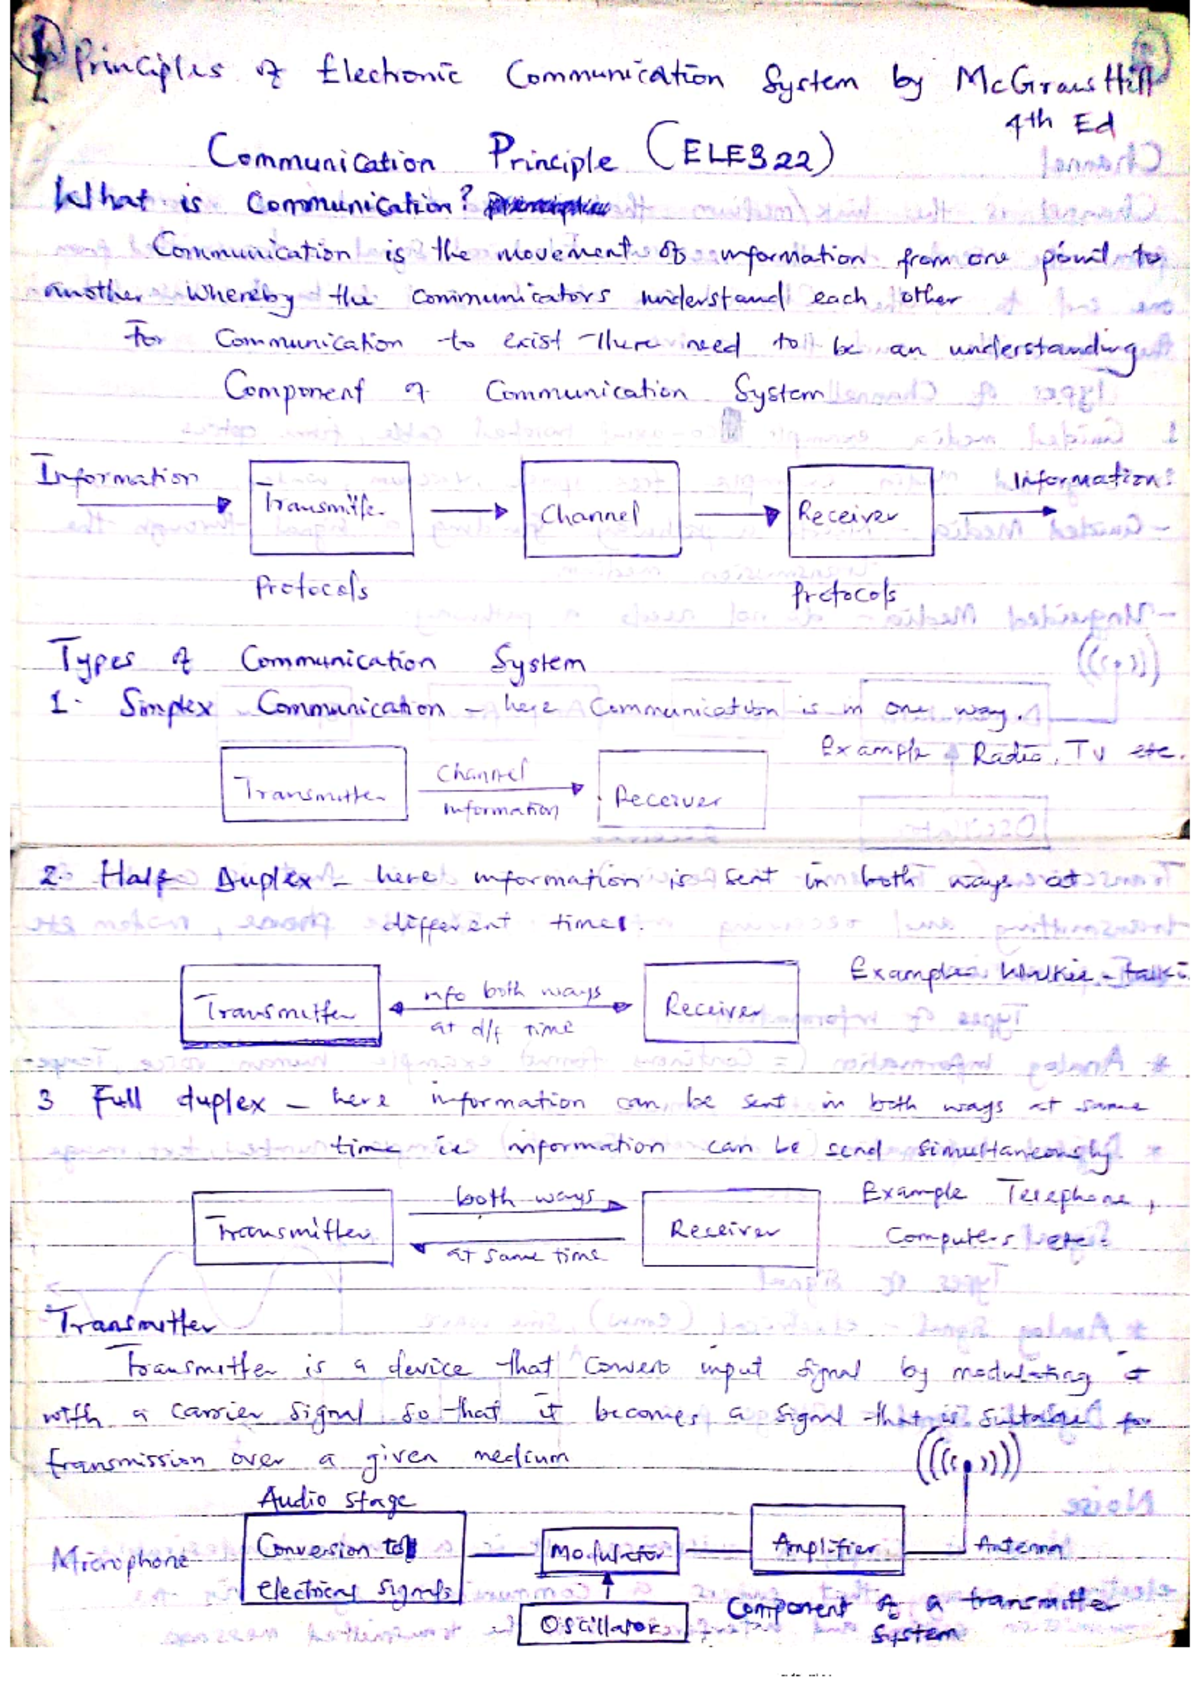 1
Principles of Electronic Communication System by McGraw Hill
4th Ed
Communication Principle (ELE322)
What is Communication?
Communication is the movement of information from one point to
another whereby the communicators understand each other
For Communication to exist there need to be an understanding
Component of Communication System
Information Transmitter Channel Receiver Information
Protocols Protocols
Types of Communication System
1. Simplex Communication – here Communication is in one way.
Example Radio, TV etc.
Transmitter Channel Receiver
information
2. Half Duplex – here information is sent in both ways at
different times.
Examples Walkie-talki
Transmitter info both ways Receiver
at d/f time
3 Full duplex – here information can be sent in both ways at same
time ie information can be send simultaneously
Transmitter both ways Receiver Example Telephone,
at same time Computers etc.
Transmitter
Transmitter is a device that convert input signal by modulating it
with a carrier signal so that it becomes a signal that is suitable for
transmission over a given medium
Audio stage
Microphone Conversion to Modulator Amplifier Antenna
electrical signals
Oscillator Component of a transmitter
System